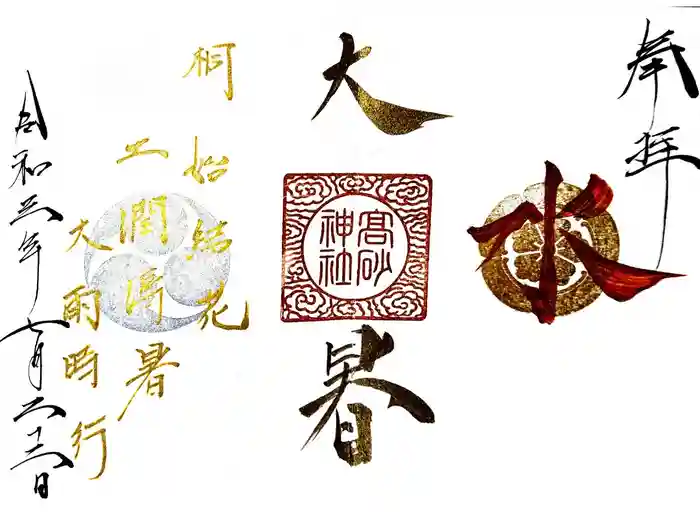 奉拝
水
大暑
高砂神社
桐始結花
土潤溽暑
大雨時行
令和三年七月二十二日